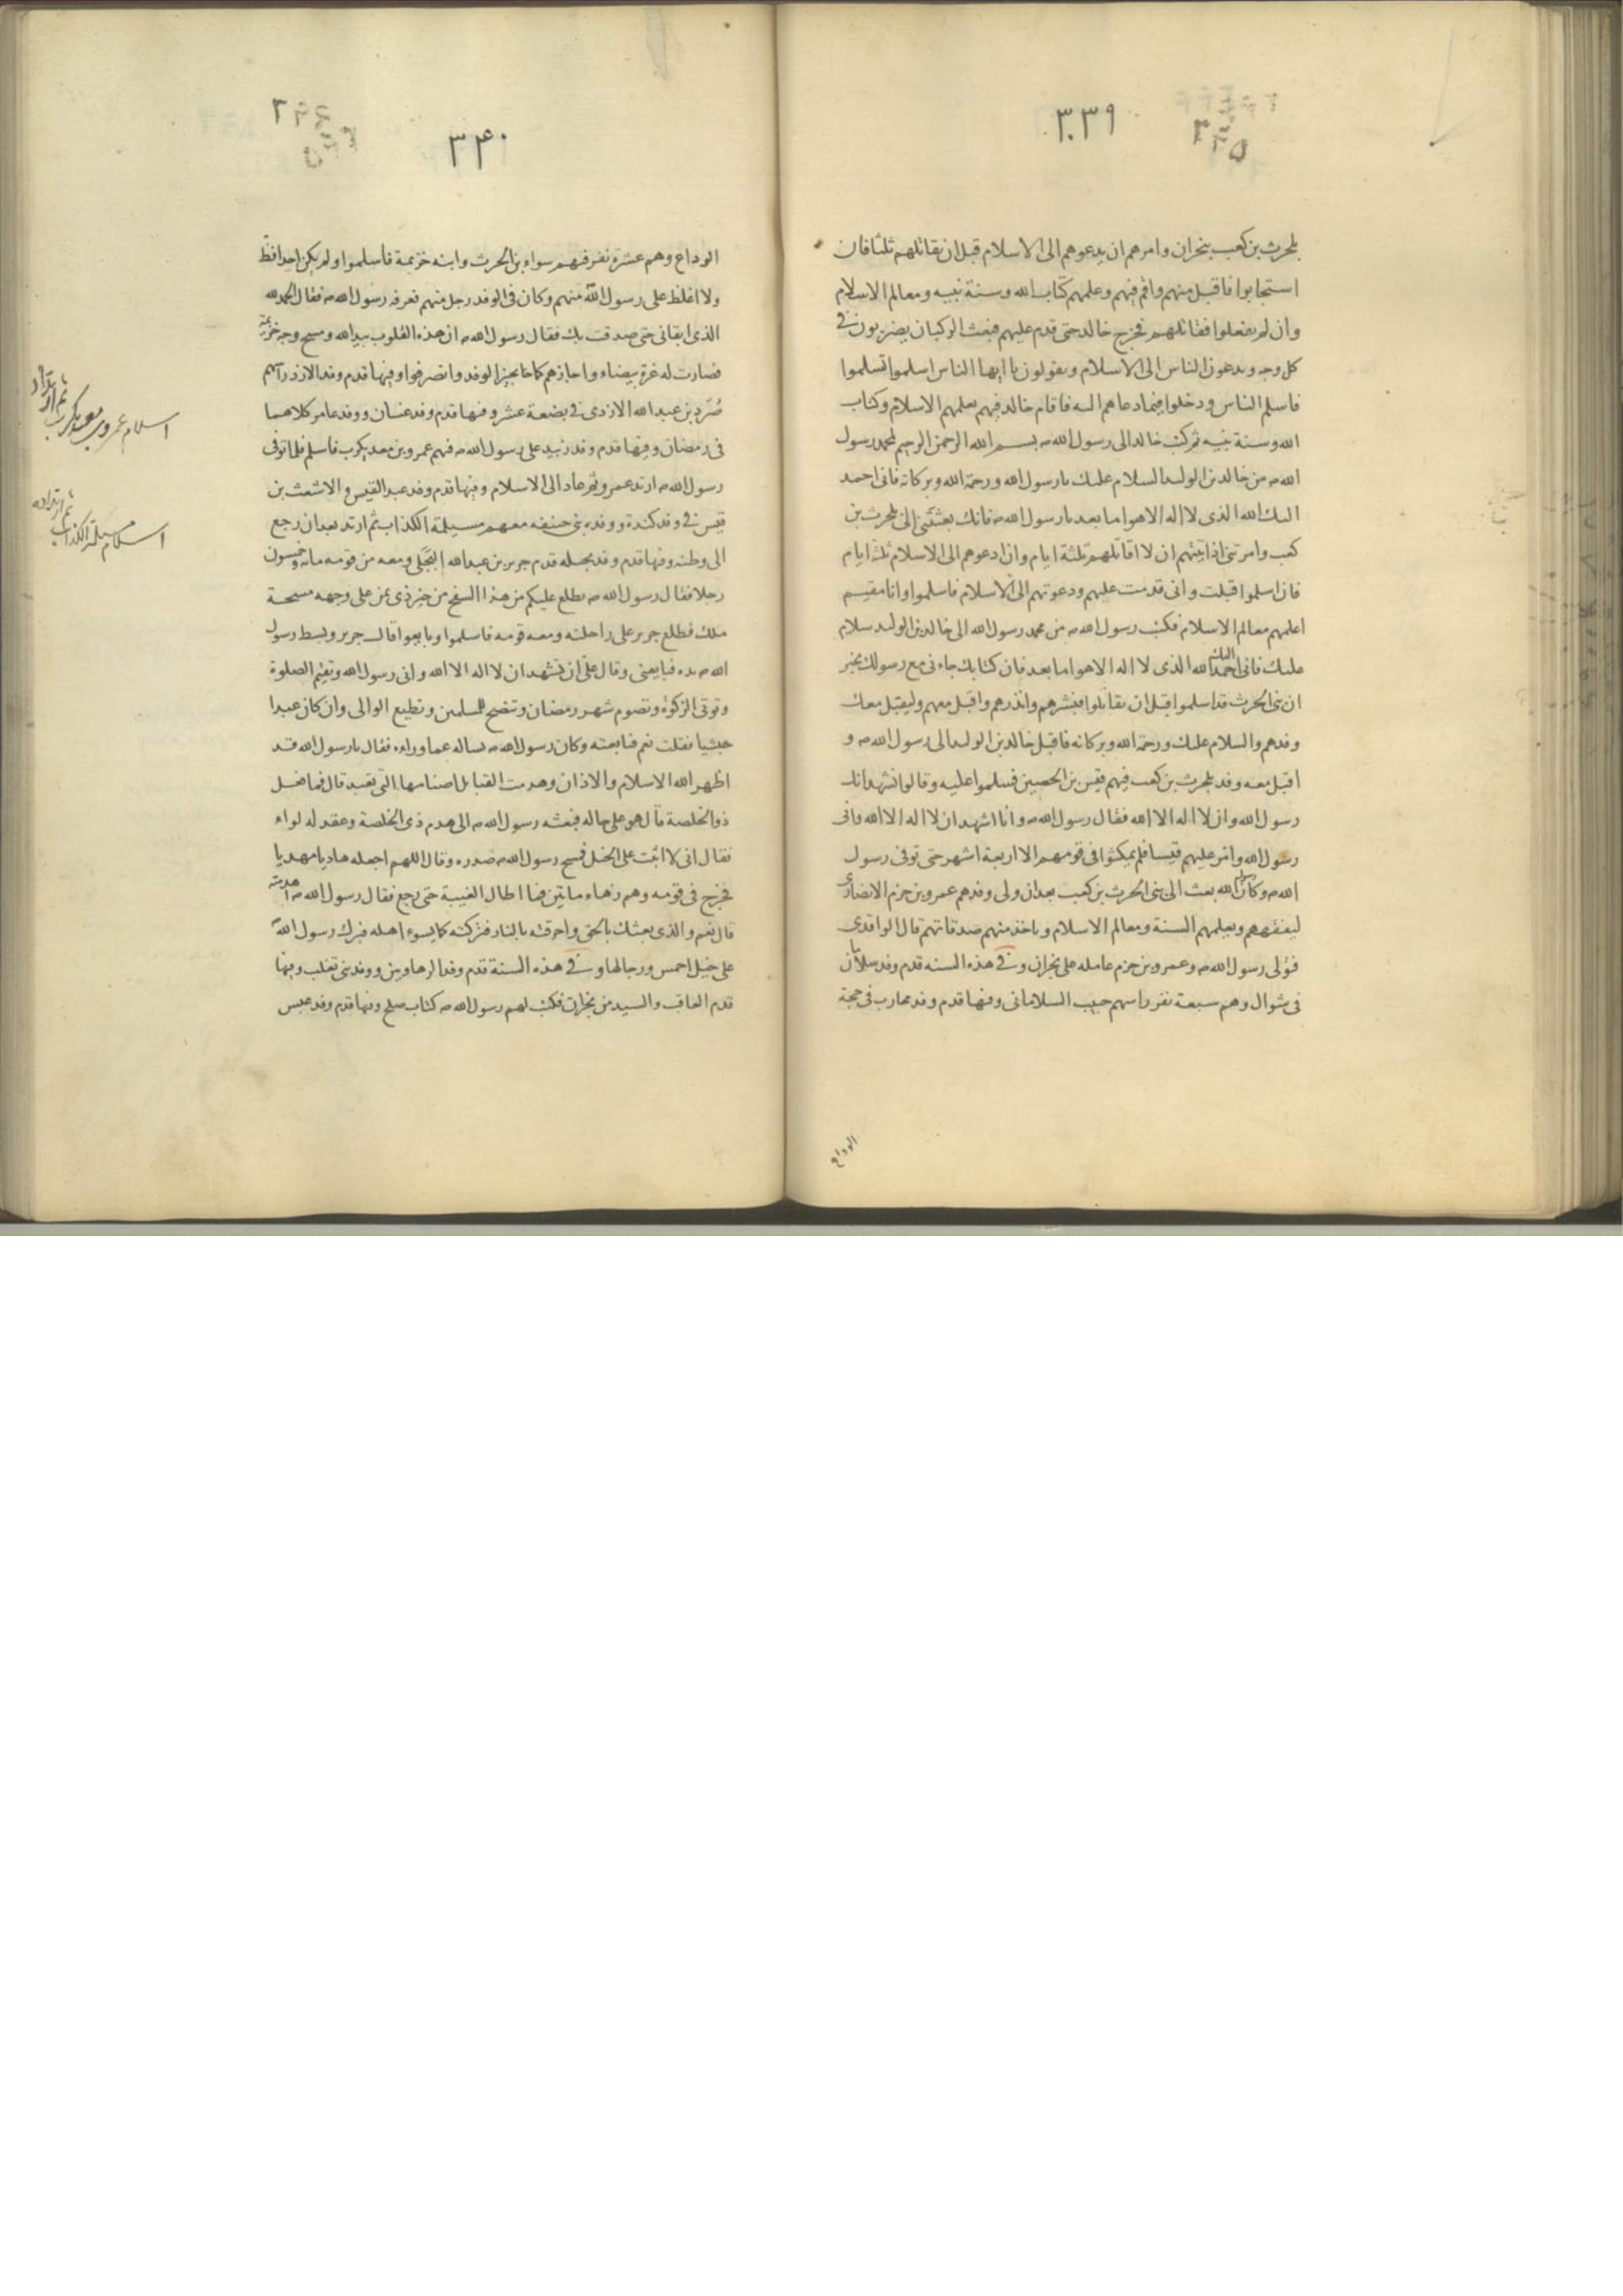 ٣٣٩
٣٣٥
بلحرث بن كعب بنجران وامرهم ان يدعوهم الى الاسلام قبل ان يقاتلهم ثلثا فان
استجابوا فاقبل منهم واقم فيهم وعلمهم كتاب الله وسنة نبيه ومعالم الاسلام
وان لم يفعلوا فقاتلهم فخرج خالد حتى قدم عليهم فبعث الركبان يضربون فى
كل وجه ويدعون الناس الى الاسلام ويقولون يا ايها الناس اسلموا تسلموا
فاسلم الناس ودخلوا فيما دعاهم اليه فاقام خالد فيهم يعلمهم الاسلام وكتاب
الله وسنة نبيه ثم كتب خالد الى رسول الله ص بسم الله الرحمن الرحيم لمحمد رسول
الله ص من خالد بن الوليد السلام عليك يا رسول الله ورحمة الله وبركاته فانى احمد
اليك الله الذى لا اله الا هو اما بعد يا رسول الله ص فانك بعثتنى الى بلحرث بن
كعب وامرتنى اذا اتيتهم ان لا اقاتلهم ثلثة ايام وان ادعوهم الى الاسلام ثلثة ايام
فان اسلموا قبلت وانى قدمت عليهم ودعوتهم الى الاسلام فاسلموا وانا مقيم
اعلمهم معالم الاسلام فكتب رسول الله ص من محمد رسول الله الى خالد بن الوليد سلام
عليك فانى احمد اليك الله الذى لا اله الا هو اما بعد فان كتابك جاءنى مع رسولك يخبر
ان بنى الحرث قد اسلموا قبل ان يقاتلوا فبشرهم وانذرهم واقبل معهم وليقبل معك
وفدهم والسلام عليك ورحمة الله وبركاته فاقبل خالد بن الوليد الى رسول الله ص و
اقبل معه وفد بلحرث بن كعب فيهم قيس بن الحصين فسلموا عليه وقالوا نشهد انك
رسول الله وان لا اله الا الله فقال رسول الله ص وانا اشهد ان لا اله الا الله وانى
رسول الله وامر عليهم قيسا فلم يمكثوا فى قومهم الا اربعة اشهر حتى توفى رسول
الله ص وكان رسول الله بعث الى بنى الحرث بن كعب بعد ان ولى وفدهم عمرو بن حزم الانصارى
ليفقههم ويعلمهم السنة ومعالم الاسلام وياخذ منهم صدقاتهم قال الواقدى
فتولى رسول الله ص وعمرو بن حزم عامله على نجران وفى هذه السنه قدم وفد سلامان
فى شوال وهم سبعة نفر راسهم حبيب السلامانى وفيها قدم وفد محارب فى حجة
الوداع
٣٤٠
الوداع وهم عشرة نفر فيهم سواء بن الحرث وابنه خزيمة فاسلموا ولم يكن احد افظ
ولا اغلظ على رسول الله منهم وكان فى الوفد رجل منهم فعرفه رسول الله ص فقال الحمد لله
الذى ابقانى حتى صدقت بك فقال رسول الله ص ان هذه القلوب بيد الله ومسح وجه خزيمة
فصارت له غرة بيضاء واجازهم كما يجيز الوفد وانصرفوا وفيها قدم وفد الازد راسهم
صُرَد بن عبد الله الازدى فى بضعة عشر وفيها قدم وفد غسان ووفد عامر كلاهما
فى رمضان وفيها قدم وفد زبيد على رسول الله ص فيهم عمرو بن معديكرب فاسلم فلما توفى
رسول الله ص ارتد عمرو ثم عاد الى الاسلام وفيها قدم وفد عبد القيس والاشعث بن
قيس فى وفد كندة ووفد بنى حنيفه معهم مسيلمة الكذاب ثم ارتد بعد ان رجع
الى وطنه وفيها قدم وفد بجيله قدم جرير بن عبد الله البجلى ومعه من قومه مائة وخمسون
رجلا فقال رسول الله ص يطلع عليكم من هذا الفج من خير ذى يمن على وجهه مسحة
ملك فطلع جرير على راحلته ومعه قومه فاسلموا وبايعوا قال جرير وبسط رسول
الله ص يده فبايعنى وقال على ان تشهد ان لا اله الا الله وانى رسول الله وتقيم الصلوة
وتوتى الزكوة وتصوم شهر رمضان وتنصح المسلمين وتطيع الوالى وان كان عبدا
حبشيا فقلت نعم فبايعته وكان رسول الله ص يساله عما وراءه فقال يا رسول الله قد
اظهر الله الاسلام والاذان وهدمت القبائل اصنامها التى تعبد قال فما فعل
ذو الخلصة قال هو على حاله فبعثه رسول الله ص الى هدم ذى الخلصة وعقد له لواء
فقال انى لا اثبت على الخيل فمسح رسول الله ص صدره وقال اللهم اجعله هاديا مهديا
فخرج فى قومه وهم زهاء مايتين فما اطال الغيبة حتى رجع فقال رسول الله ص اهدمته
قال نعم والذى بعثك بالحق واحرقته بالنار فتركته كما يسوء اهله فبرك رسول الله
على خيل احمس ورجالها وفى هذه السنة قدم وفد الرهاويين ووفد بنى تغلب وفيها
قدم العاقب والسيد من نجران فكتب لهم رسول الله ص كتاب صلح وفيها قدم وفد عبس
اسلام عمرو بن معديكرب
ثم ارتداد
اسلام مسيلمة الكذاب
ثم ارتداده